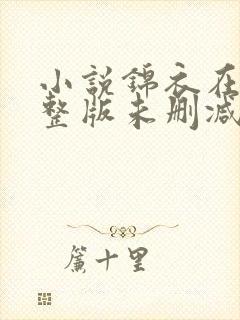 小説錦衣在
整版未刪減
簾十里